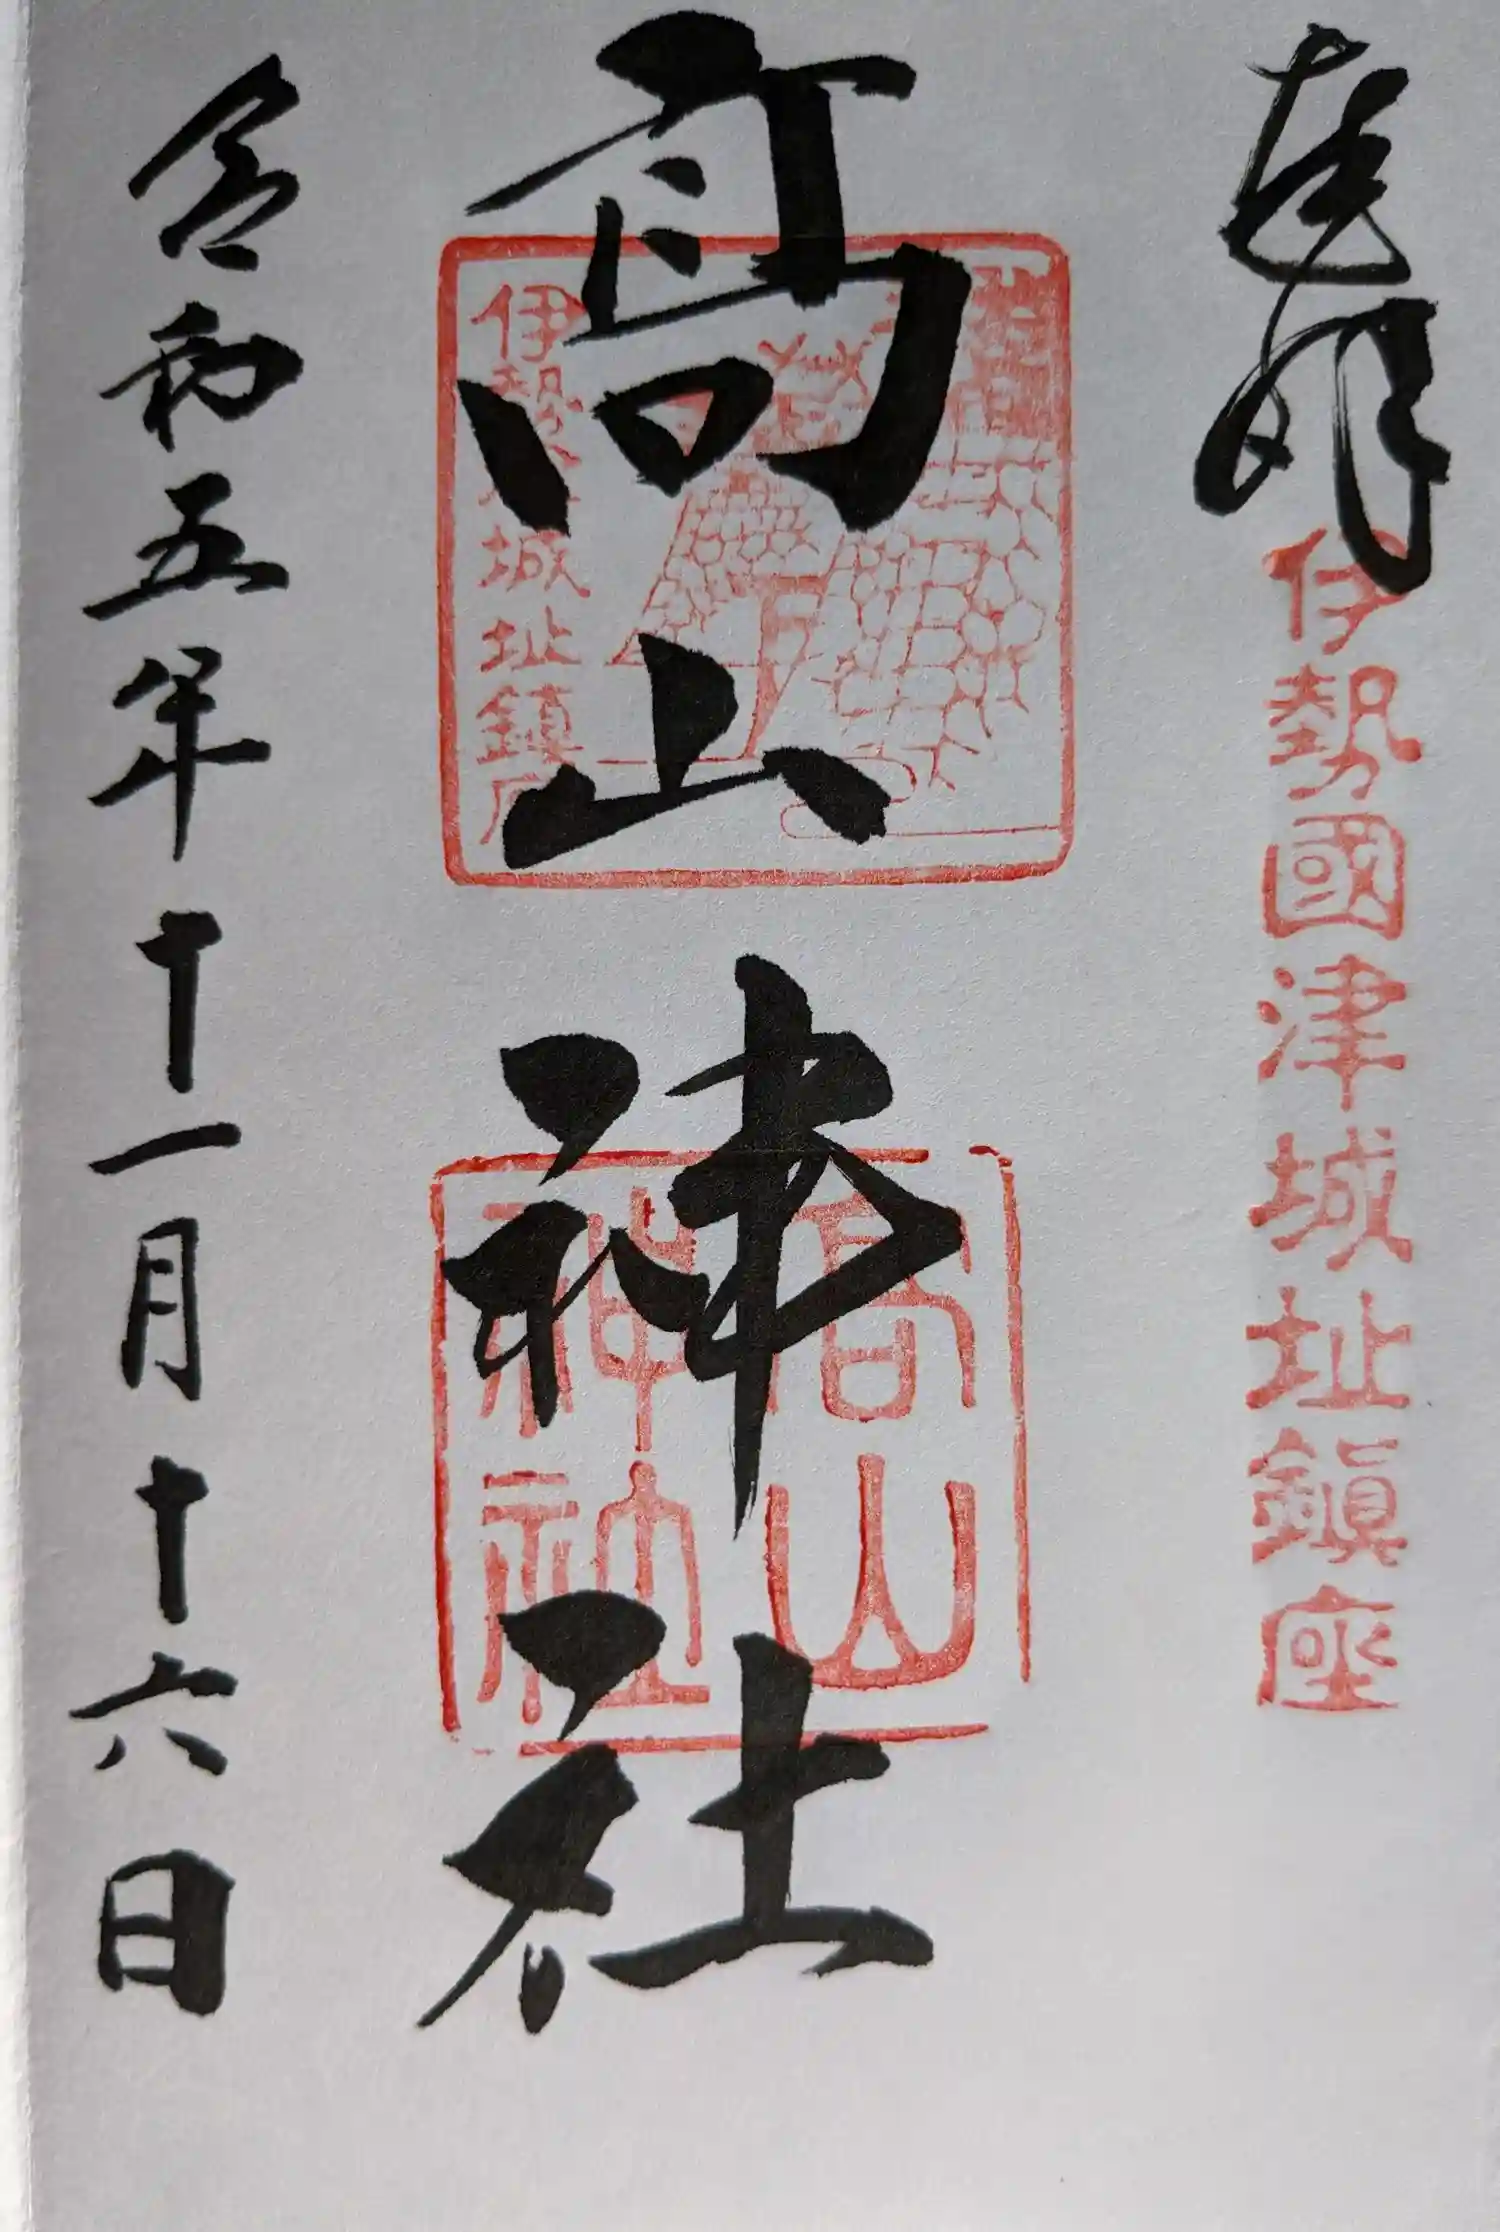 奉拝
伊勢國津城址鎮座
高山神社
高山
神社
伊勢津城址鎮座
令和五年十一月十六日